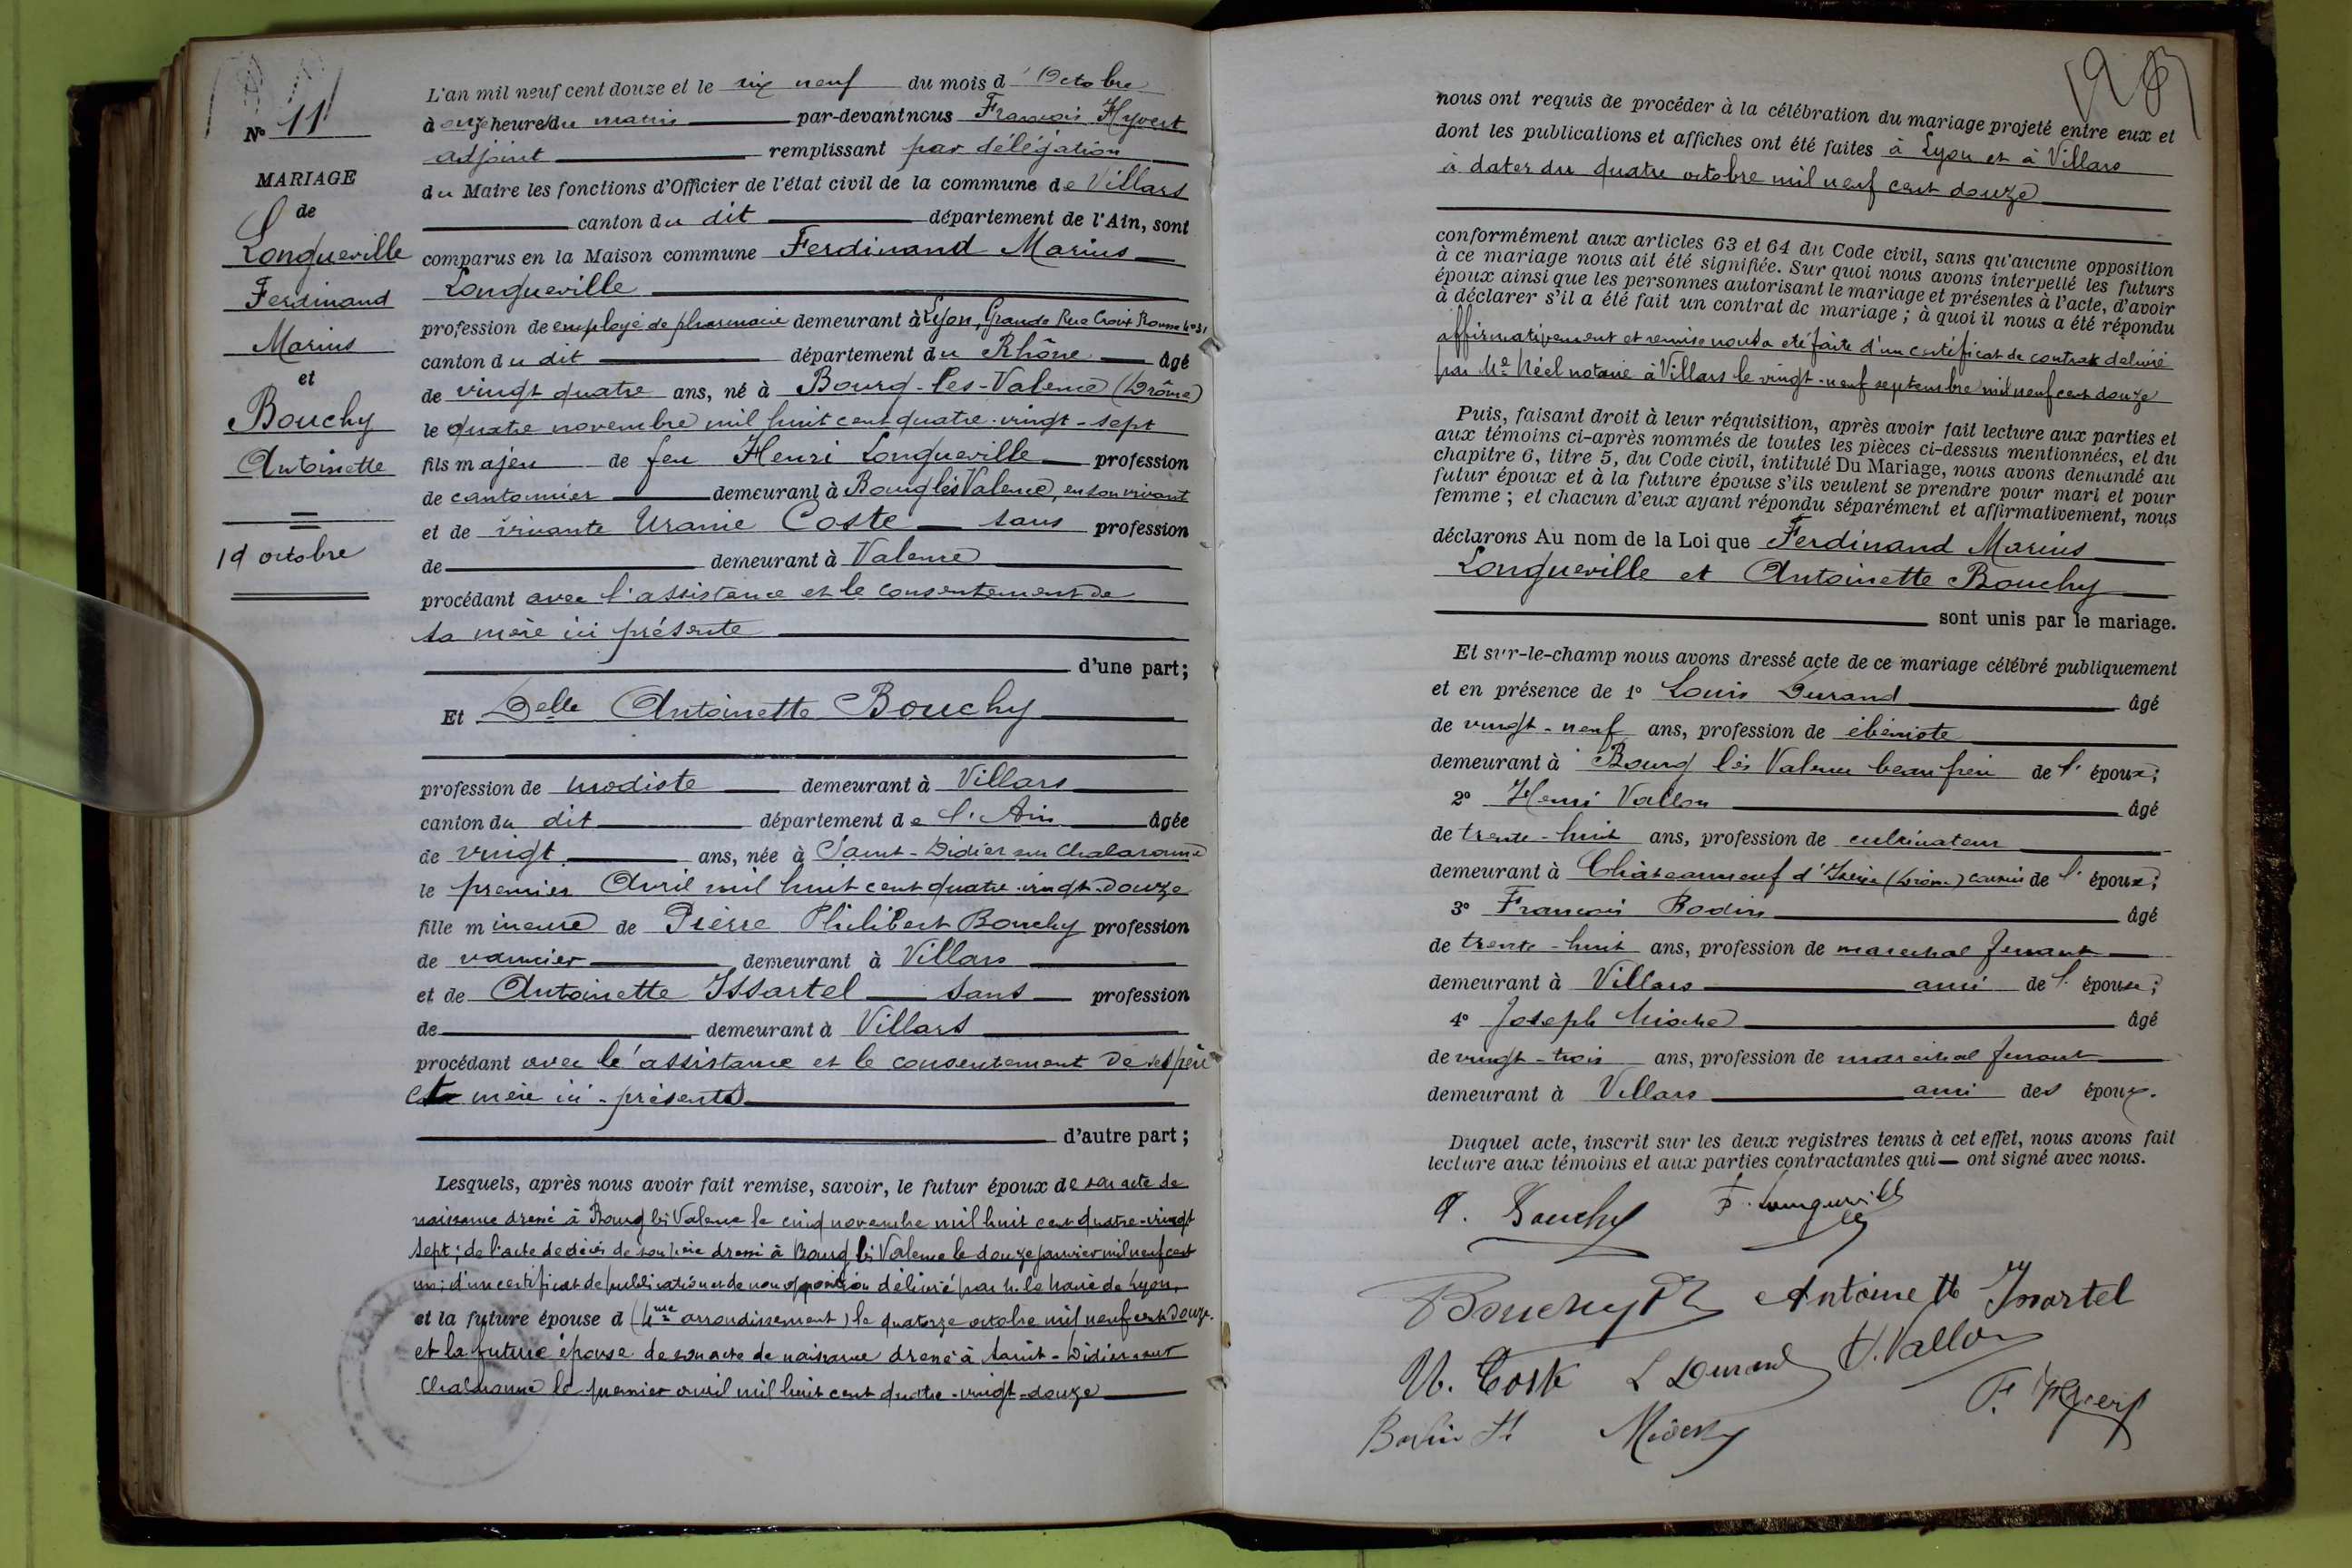 N° 11
MARIAGE
de
Longueville
Ferdinand
Marius
et
Bouchy
Antoinette
19 octobre
L'an mil neuf cent douze et le dix neuf du mois d'Octobre
à onze heures du matin par-devant nous François Hyvert
adjoint remplissant par délégation
du Maire les fonctions d'Officier de l'état civil de la commune de Villars
canton du dit département de l'Ain, sont
comparus en la Maison commune Ferdinand Marius
Longueville
profession de employé de pharmacie demeurant à Lyon, Grande Rue Croix Rousse N°
canton du dit département du Rhône âgé
de vingt quatre ans, né à Bourg-les-Valence (Drôme)
le quatre novembre mil huit cent quatre-vingt-sept
fils majeu de feu Henri Longueville profession
de cantonnier demeurant à Bourg lès Valence, en son vivant
et de vivante Uranie Coste sans profession
de demeurant à Valence
procédant avec l'assistance et le consentement de
sa mère ici présente
d'une part;
Et Delle Antoinette Bouchy
profession de modiste demeurant à Villars
canton du dit département de l'Ain âgée
de vingt ans, née à Saint-Didier sur Chalaronne
le premier Avril mil huit cent quatre-vingt-douze
fille mineure de Pierre Philibert Bouchy profession
de vannier demeurant à Villars
et de Antoinette Issartel sans profession
de demeurant à Villars
procédant avec le'assistance et le consentement de ses père
et mère ici-présents
d'autre part;
Lesquels, après nous avoir fait remise, savoir, le futur époux de son acte de
naissance dressé à Bourg les Valence le cinq novembre mil huit cent quatre-vingt
sept; de l'acte de décès de son père dressé à Bourg lès Valence le douze janvier mil neuf cent
un; d'un certificat de publication et de non opposition délivré par M. le Maire de Lyon,
et la future épouse d (4me arrondissement) le quatorze octobre mil neuf cent douze.
et la future épouse de son acte de naissance dressé à Saint-Didier-sur
Chalaronne le premier avril mil huit cent quatre-vingt-douze
nous ont requis de procéder à la célébration du mariage projeté entre eux et
dont les publications et affiches ont été faites à Lyon et à Villars
à dater du quatre octobre mil neuf cent douze
conformément aux articles 63 et 64 du Code civil, sans qu'aucune opposition
à ce mariage nous ait été signifiée. Sur quoi nous avons interpellé les futurs
époux ainsi que les personnes autorisant le mariage et présentes à l'acte, d'avoir
à déclarer s'il a été fait un contrat de mariage; à quoi il nous a été répondu
affirmativement et remise nous a été faite d'un certificat de contrat délivré
par Me Réel notaire à Villars le vingt-neuf septembre mil neuf cent douze
Puis, faisant droit à leur réquisition, après avoir fait lecture aux parties et
aux témoins ci-après nommés de toutes les pièces ci-dessus mentionnées, et du
chapitre 6, titre 5, du Code civil, intitulé Du Mariage, nous avons demandé au
futur époux et à la future épouse s'ils veulent se prendre pour mari et pour
femme; et chacun d'eux ayant répondu séparément et affirmativement, nous
déclarons Au nom de la Loi que Ferdinand Marius
Longueville et Antoinette Bouchy
sont unis par le mariage.
Et sur-le-champ nous avons dressé acte de ce mariage célébré publiquement
et en présence de 1° Louis Durand âgé
de vingt-neuf ans, profession de ébéniste
demeurant à Bourg lès Valence beau frère de l'époux;
2° Henri Vallon âgé
de trente-huit ans, profession de cultivateur
demeurant à Châteauneuf d'Isère (Drôme) cousin de l'époux;
3° François Bodin âgé
de trente-huit ans, profession de marechal ferrant
demeurant à Villars ami de l'épouse;
4° Joseph Mioche âgé
de vingt-trois ans, profession de marechal ferrant
demeurant à Villars ami des époux.
Duquel acte, inscrit sur les deux registres tenus à cet effet, nous avons fait
lecture aux témoins et aux parties contractantes qui ont signé avec nous.
A. Bouchy F. Longueville
Bouchy Antoinette Issartel
U. Coste L Durand H. Vallon
Bodin F. Hyvert